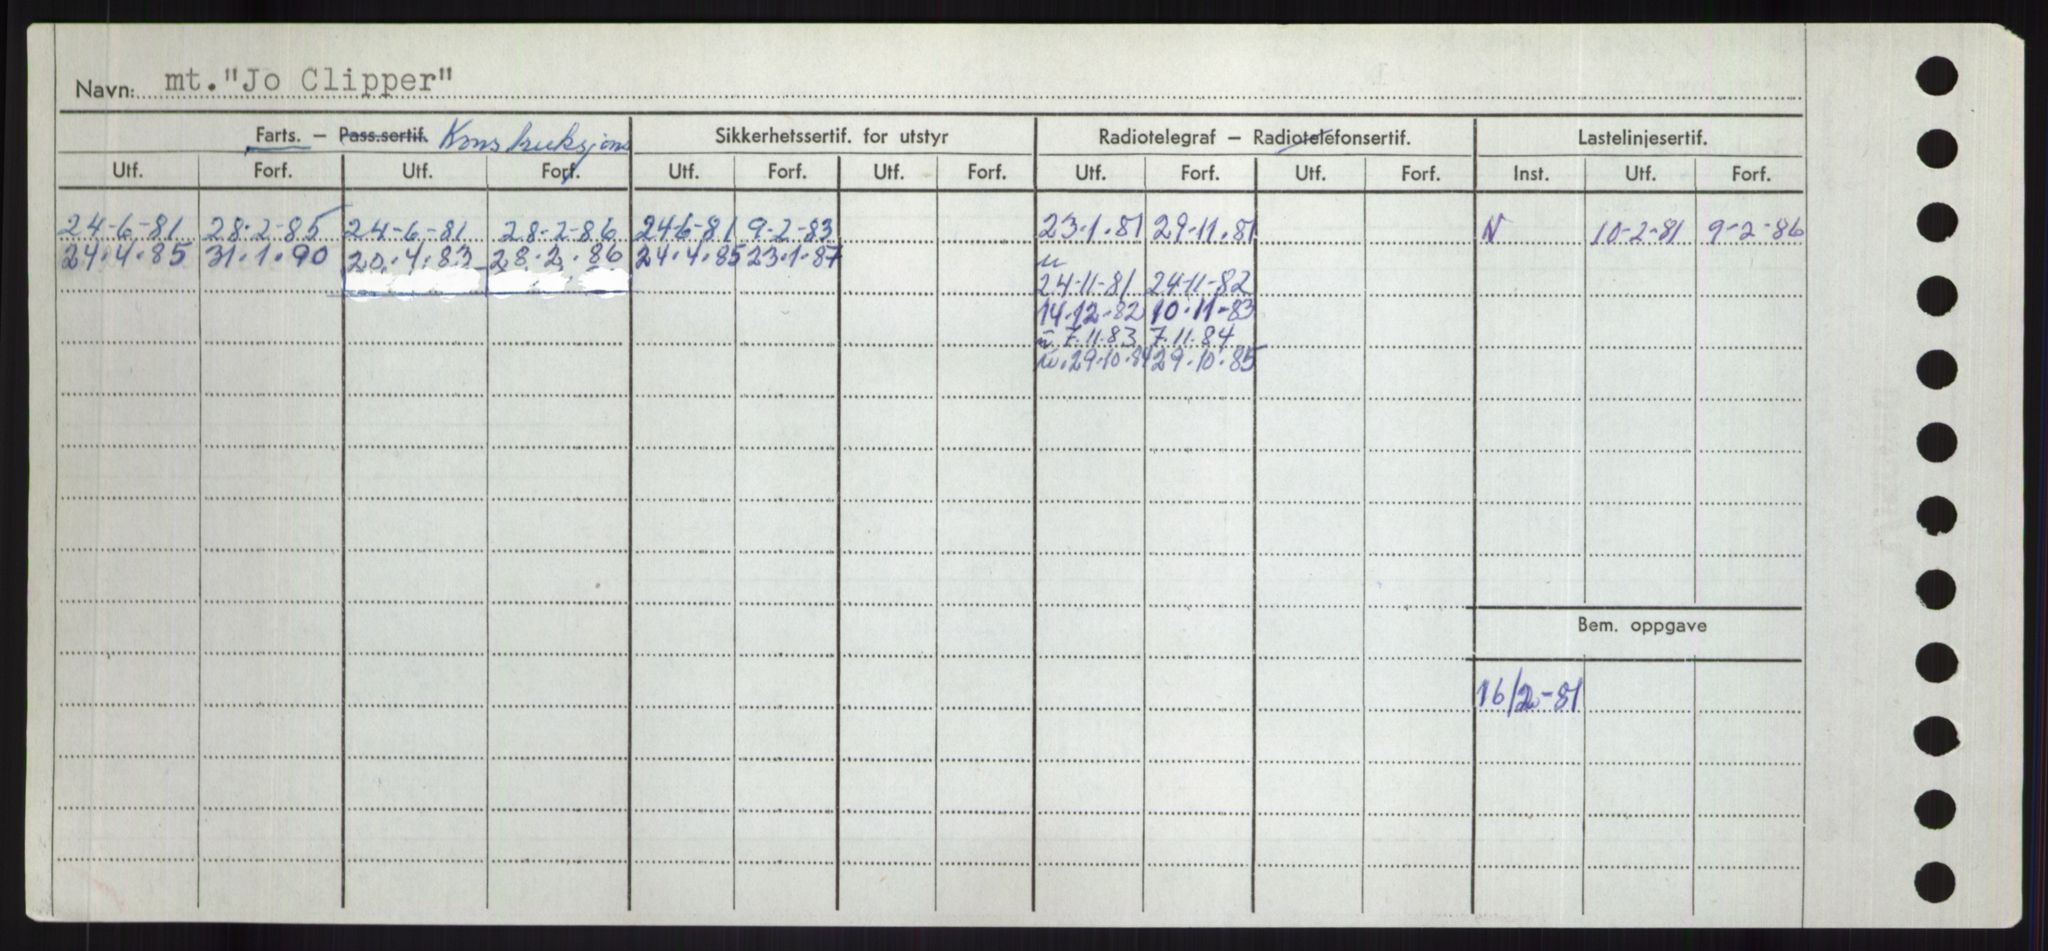 Navn: mt."Jo Clipper"
Farts. — Pass.sertif. Konstruksjons Sikkerhetssertif. for utstyr Radiotelegraf — Radiotelefonsertif. Lastelinjesertif.
Utf. Forf. Utf. Forf. Utf. Forf. Utf. Forf. Utf. Forf. Utf. Forf. Inst. Utf. Forf.
24-6-81 28-2-85 24-6-81 28-2-86 24-6-81 9-2-83 23.1.81 29.11.81 N 10-2-81 9-2-86
24.4.85 31.1.90 20.4.83 28.2.86 24.4.85 23.1.87
24-11-81 24-11-82
14.12-82 10.11-83
7.11.83 7.11.84
29.10.84 29.10.85
Bem. oppgave
16/2-81